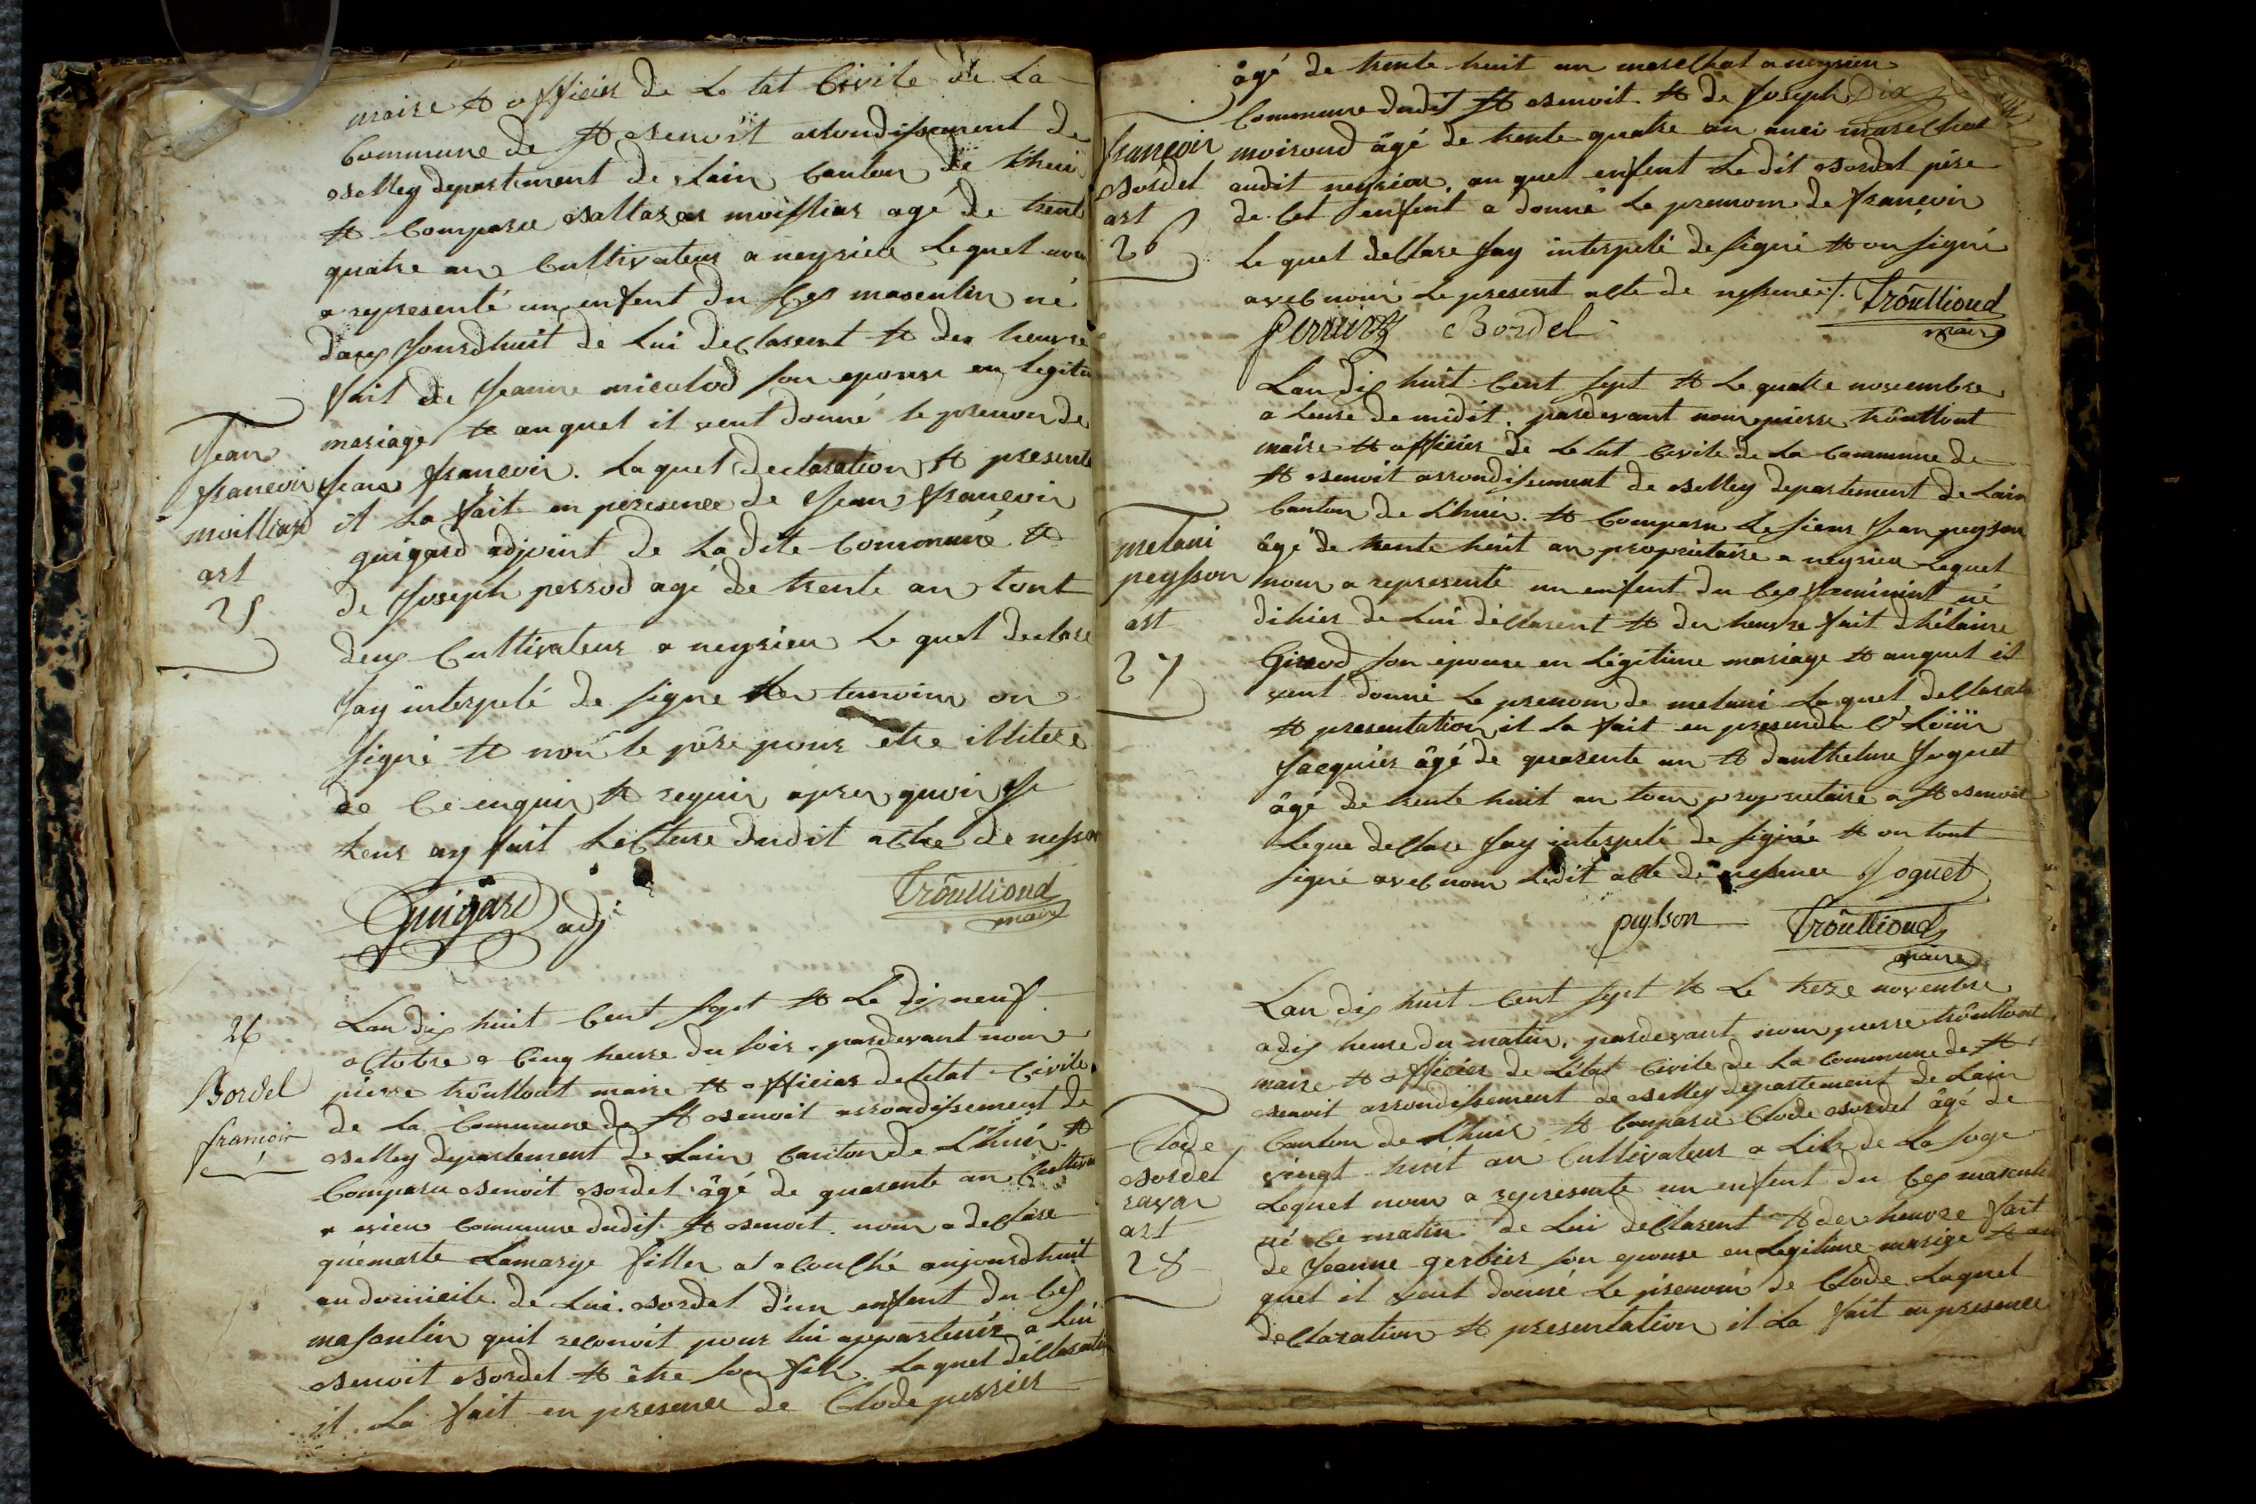 maire et officier de Le tat Civile de La
Commune de St Benoit arrondissement de
Belley departement de Lain Canton de Lhuis
et Comparu Baltazar moilliar agé de trent
quatre an Cultivateur a neyrieu Lequel nou
a representé un enfent du Cex masculin né
daux Jourdhuit de Lui declarent et den heuvre
fait de Jeanne micolod son epouse en legiti
mariage et au quel il veut donné le prenon de
Jean francoir. La quel declaration et presente
il La fait en presence de Jean francoir
guigard adjoint de Ladite Commune et
de Joseph perrod agé de trente an tout
deux Cultivateur a neyrieu Le quel declare
Jay interpelé de signe les temoins on
signé et non le père pour etre illiteré
de Ce enquir et requir apres quoir Je
Leur ay fait Lecture dudit acte de nessan
Jean
francoir
moilliard
art
25
Guigard adj
Troullioud
maire
Lan dix huit Cent sept et Le dix neuf
octobre a Cinq heure du soir. pardevant nour
pierre troulliout maire et officier de Letat Civile
de La Commune de St Benoit arrondissement de
Belley departement de Lain Canton de Lhuis et
Comparu Benoit Bordel âgé de quarente an Cultiva
a evieu Commune dudit St Benoit nour a declaré
quémarte Lamarye filler at acouché aujourdhuit
au domicile de Lui Bordel d'un enfent du Cex
masculin quil reconoit pour lui appartenir a Lui
Benoit Bordel et être son fils. La quel declaration
il La fait en presence de Clode perrier
26
Bordel
françoir
âgé de trente huit an marechal a neyrieu
Commune dudit St Benoit et de Joseph Dix
moiroud âgé de trente quatre an auci marechal
audit neyrieu, au quel enfent Ledit Bordel père
de Cet enfent a donné Le prenom de françoir
Le quel declare Jay interpelé de signé et on signé
avec nour Le present acte de nessence /.
françoir
Bordel
art
26
Perrier Bordel Troullioud
maire
Lan dix huit Cent sept et Le quatre novembre
a Leure de midit. pardevant nour pierre troulliout
maire et officier de Letat Civile de La Commune de
St Benoit arrondissement de Belley departement de Lain
Canton de Lhuis. et Comparu Le sieur Jean peysson
âgé de trente huit an propriétaire a neyrieu Lequel
nour a representé un enfent du Cex feminint né
dihier de Lui déclarent et den heuvre fait dhélaine
Girod son épouse en Légitime mariage et auquel il
veut donné Le prenom de melani La quel declarati
et presentation il La fait en presence de Louir
Jacquier âgé de quarente an et danthelme Joguet
âgé de trente huit an tour proprietaire a St Benoit
Leque declare Jay interpelé de signée et on tout
signé avec nour Ledit acte de nessence Joguet
melani
peysson
art
27
peysson Troullioud
maire
Lan dix huit Cent sept et Le treze novembre
a dix heure du matin, pardevant nour pierre troulliout
maire et officier de Létat Civile de La Commune de St
Benoit arrondissement de Belley departement de Lain
Canton de Lhuis et Comparu Clode Bordel âgé de
vingt huit an Cultivateur a Lile de La soge
Lequel nour a representé un enfent du Cex masculi
né Ce matin de Lui déclarent et den heuvre fait
de Jeanne gerbier son epouse en Legitime marige et au
quel il veut donné Le prenom de Clode Laquel
declaration et presentation il La fait en presence
Clode
Bordel
ravar
art
28